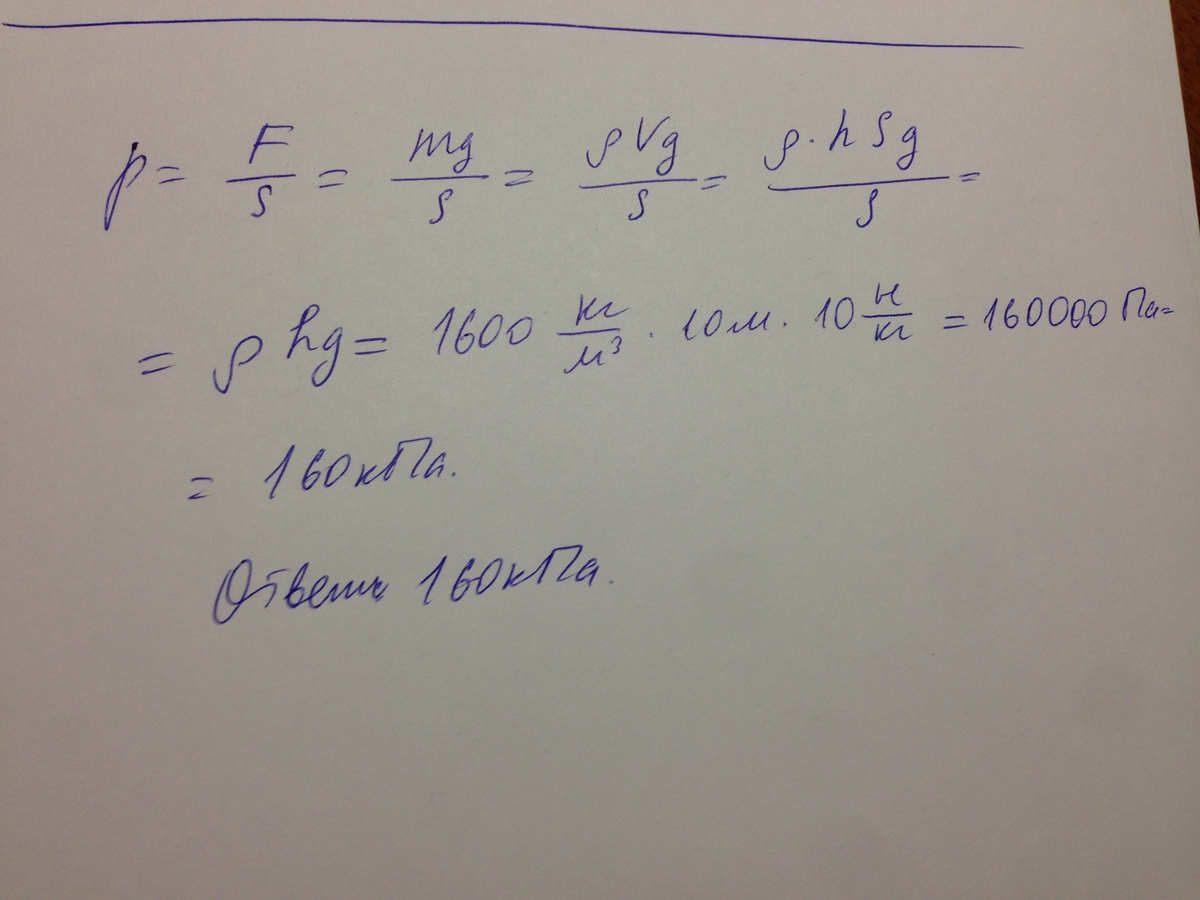 p = F/S = mg/S = ρVg/S = ρ·hSg/S =
= ρhg = 1600 кг/м³ · 10м · 10 Н/кг = 160000 Па=
= 160кПа.
Ответ 160кПа.